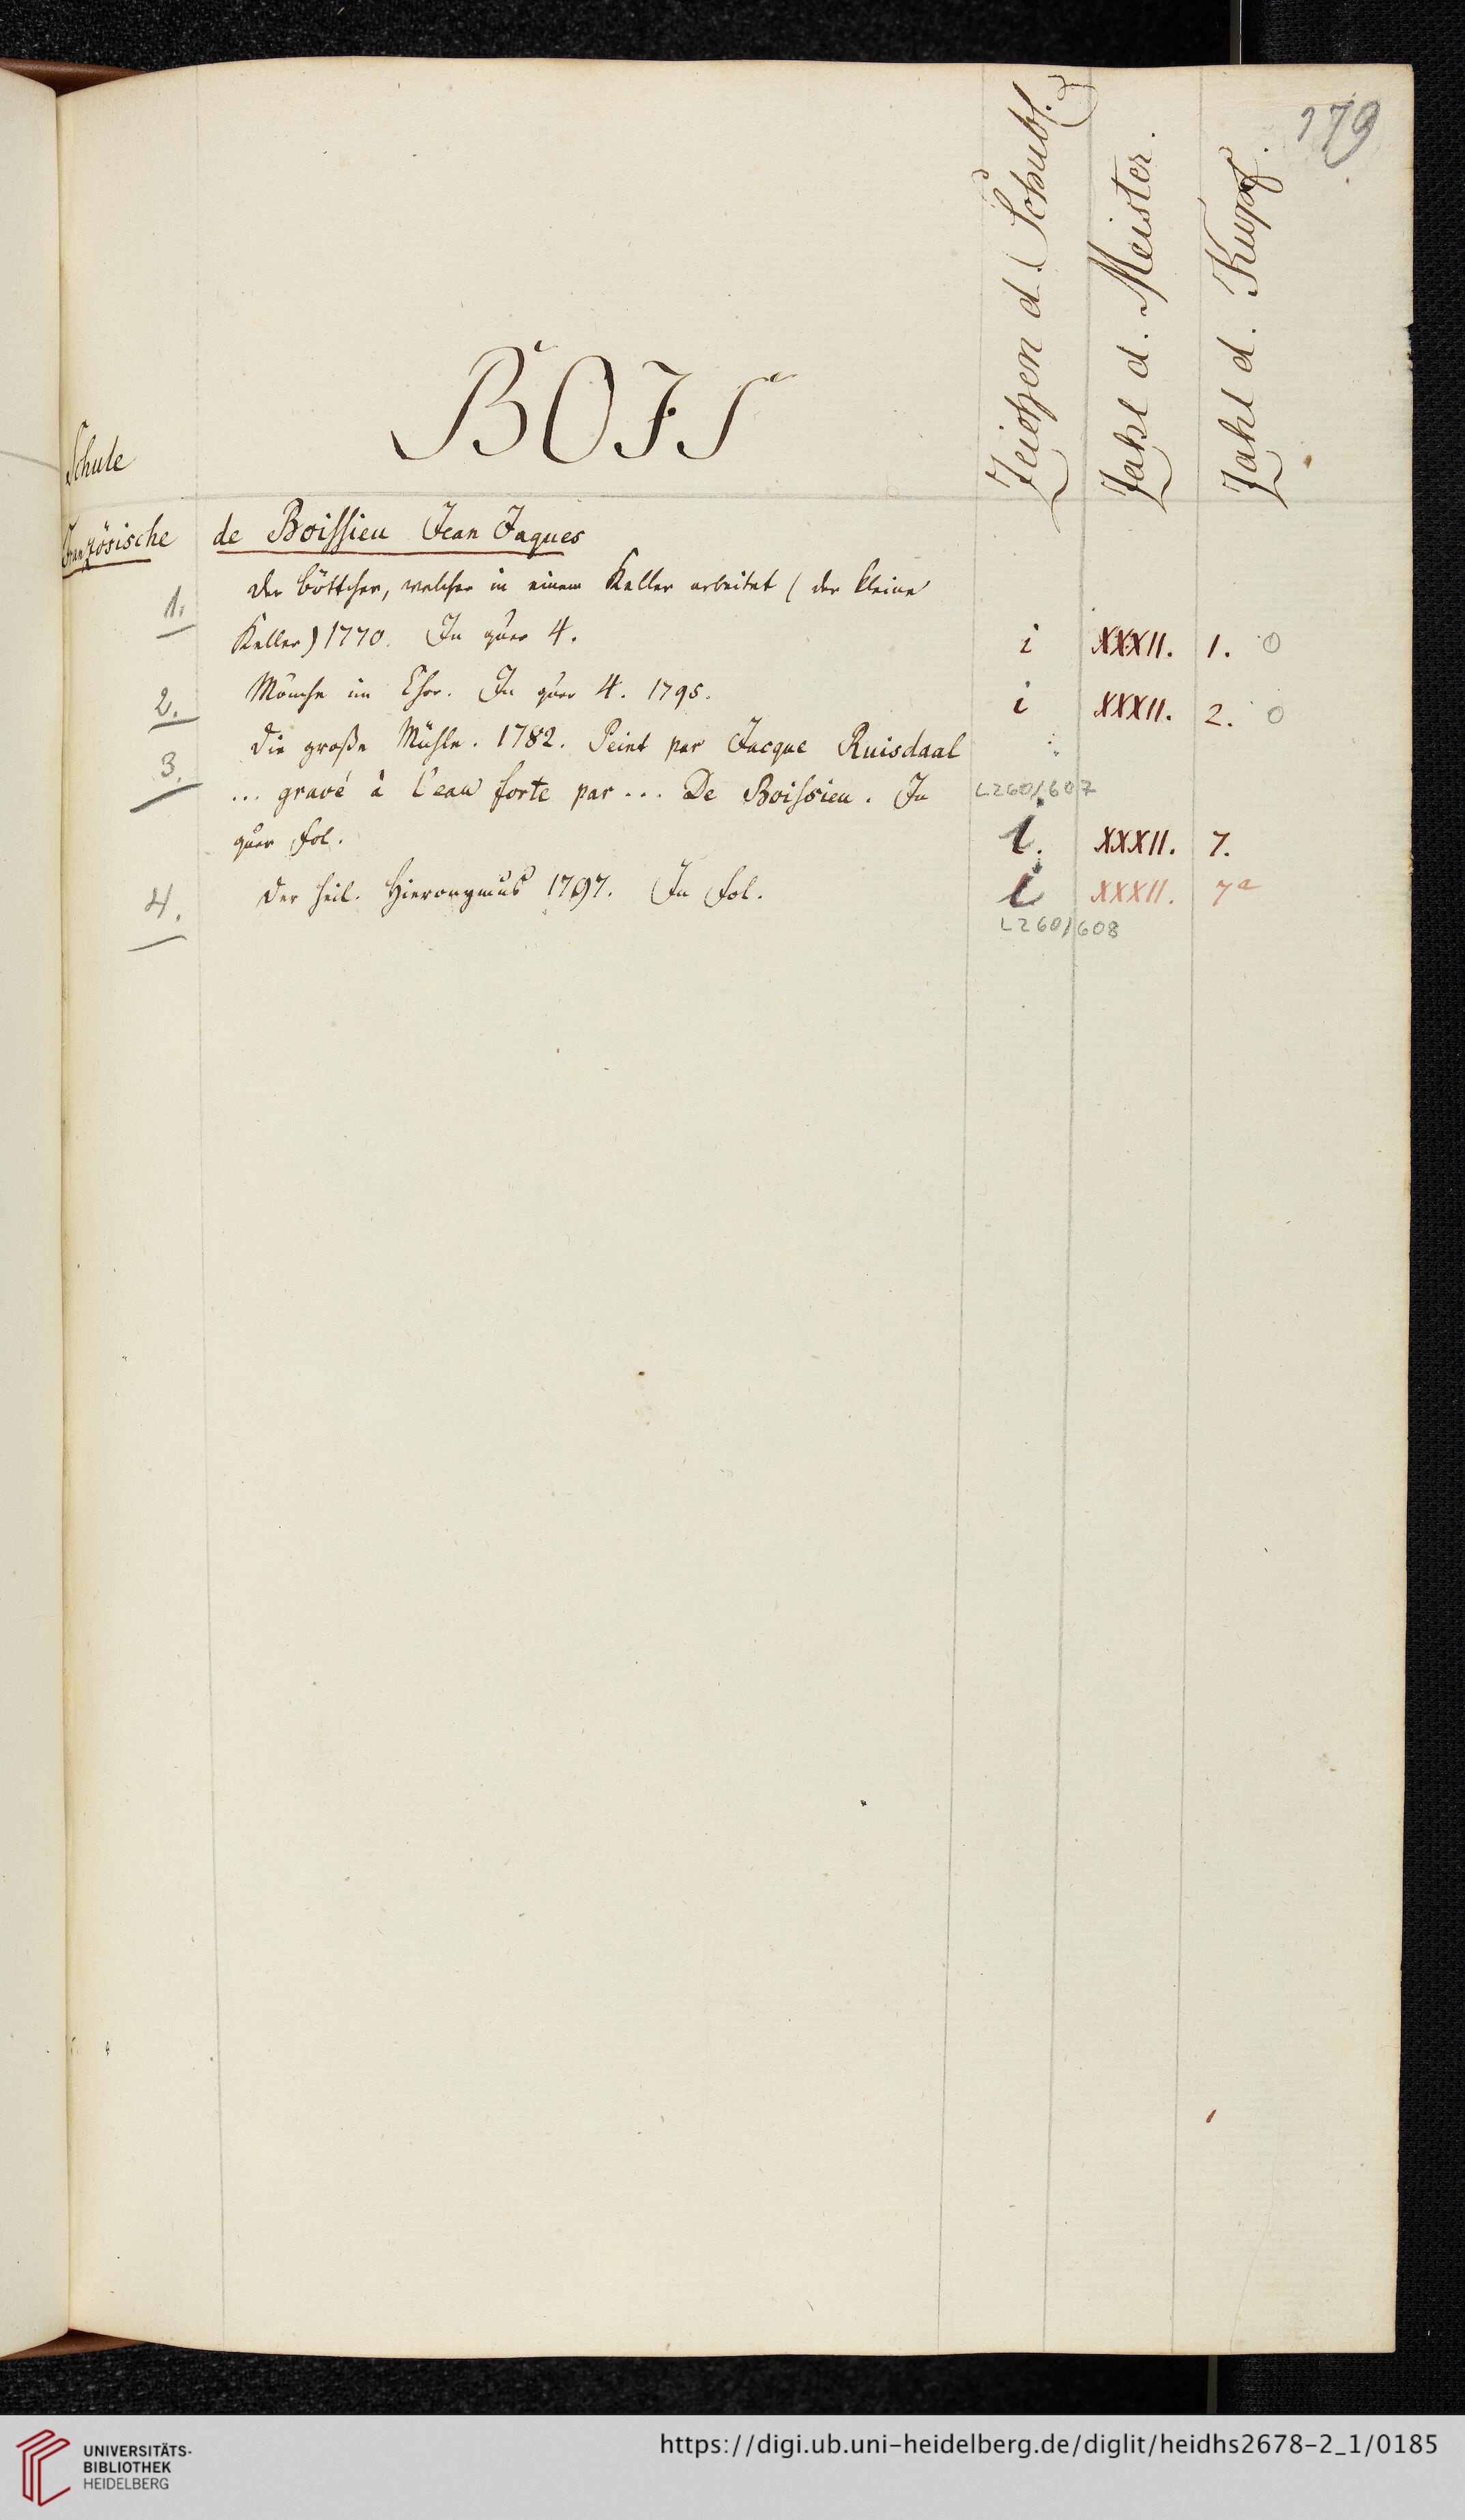 179
Zeichen d. Schubl.
Zahl d. Meister.
Zahl d. Kupf.
BOIS
Schule
Französische de Boissieu Jean Jaques
1. Der Böttcher, welcher in einem Keller arbeitet (der kleine
Keller) 1770. In quer 4. i XXXII. 1. 0
2. Mönche im Chor. In quer 4. 1795. i XXXII. 2. 0
3. Die große Mühle. 1782. Peint par Jacque Ruisdaal
... gravé à l'eau forte par ... De Boissieu. In L260/607
quer fol. i. XXXII. 7.
4. Der heil. Hieronymus 1797. In fol. i XXXII. 7a
L260/608
UNIVERSITÄTS-
BIBLIOTHEK
HEIDELBERG
https://digi.ub.uni-heidelberg.de/diglit/heidhs2678-2_1/0185